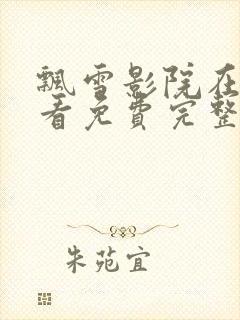 飘雪影院在
看免费完整
朱苑宜